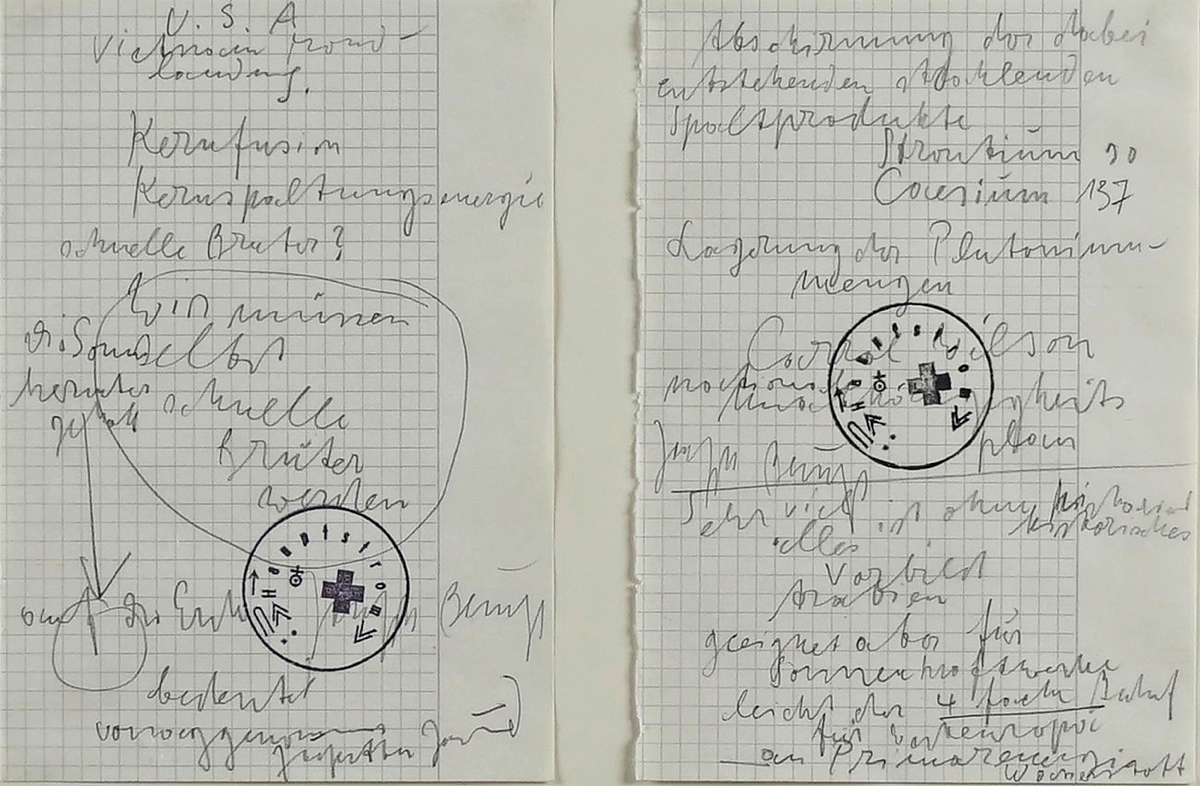 U. S. A
Vietnam Mond-
landung.
Kernfusion
Kernspaltungsenergie
schnelle Brüter?
Wir müssen
die Sonne
selbst
herunter
geholt
schnelle
Brüter
werden
Hauptstrom
auf die Erde Joseph Beuys
bedeutet
Abschirmung der dabei
entstehenden strahlenden
Spaltprodukte
Strontium 90
Caesium 137
Lagerung der Plutonium-
mengen
Carrol Wilson
Hauptstrom
plan
Joseph Beuys
Sehr viel ist ohne historisches
alles
Vorbild
Arabien
geeignet aber für
Sonnenkraftwerke
leicht der 4 fache Bedarf
für Westeuropa
an Primärenergie